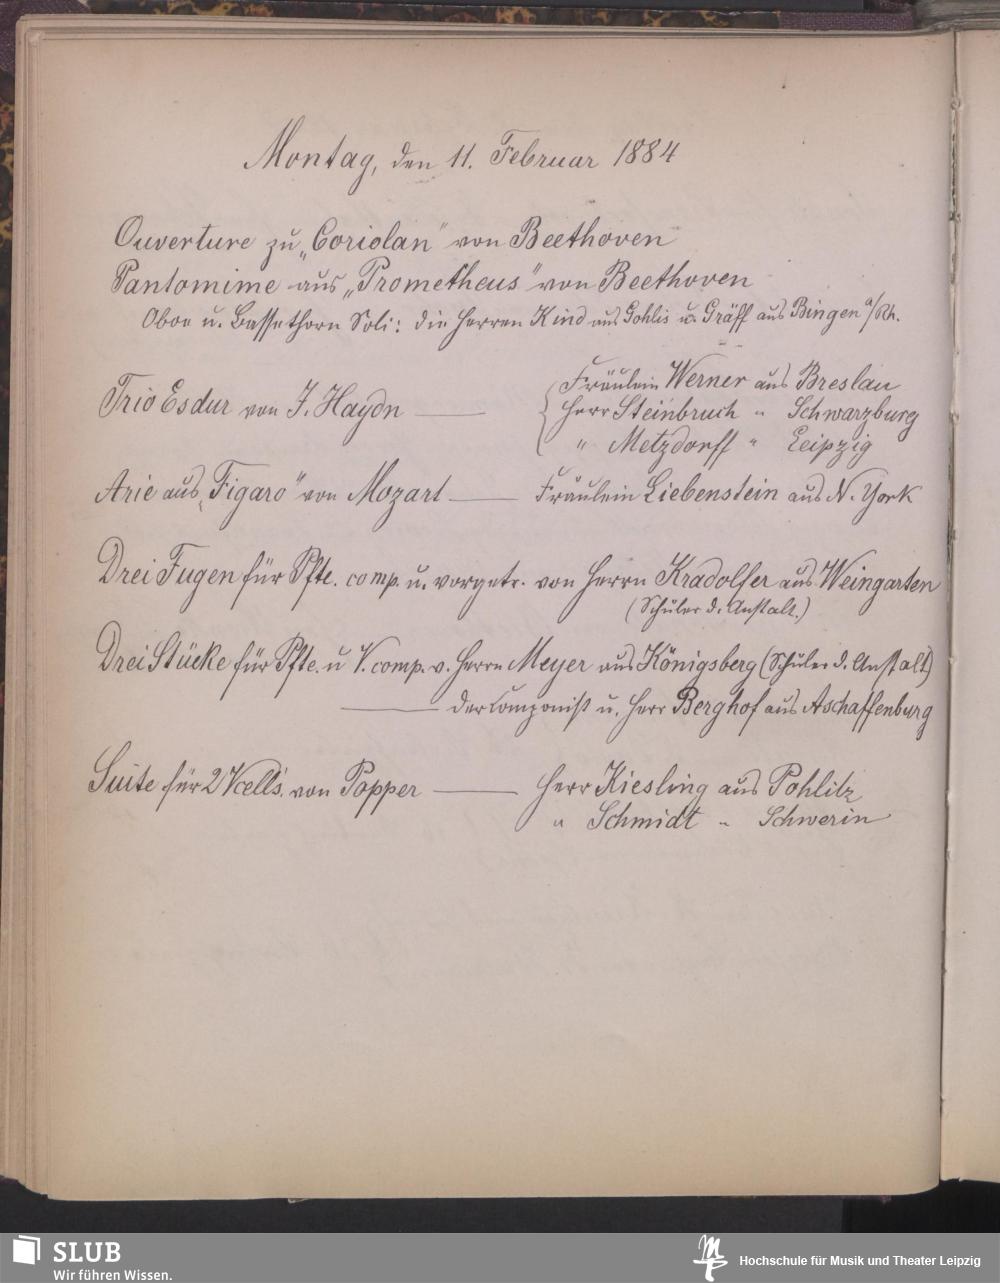 Montag, den 11. Februar 1884
Ouverture zu „Coriolan" von Beethoven
Pantomime aus „Prometheus" von Beethoven
Oboe u. Bassethorn Soli: die Herren Kind aus Gohlis u. Gräff aus Bingen a/Rh.
Trio Esdur von J. Haydn —— Fräulein Werner aus Breslau
Herr Steinbruch " Schwarzburg
" Metzdorff " Leipzig
Arie aus „Figaro" von Mozart —— Fräulein Liebenstein aus N. York
Drei Fugen für Pfte. comp. u. vorgetr. von Herrn Kradolfer aus Weingarten
(Schüler d. Anstalt.)
Drei Stücke für Pfte. u V. comp. v. Herrn Meyer aus Königsberg (Schüler d. Anstalt)
—— der Componist u. Herr Berghof aus Aschaffenburg
Suite für 2 Vcell's. von Popper —— Herr Kiesling aus Pohlitz
" Schmidt " Schwerin
SLUB
Wir führen Wissen.
Hochschule für Musik und Theater Leipzig